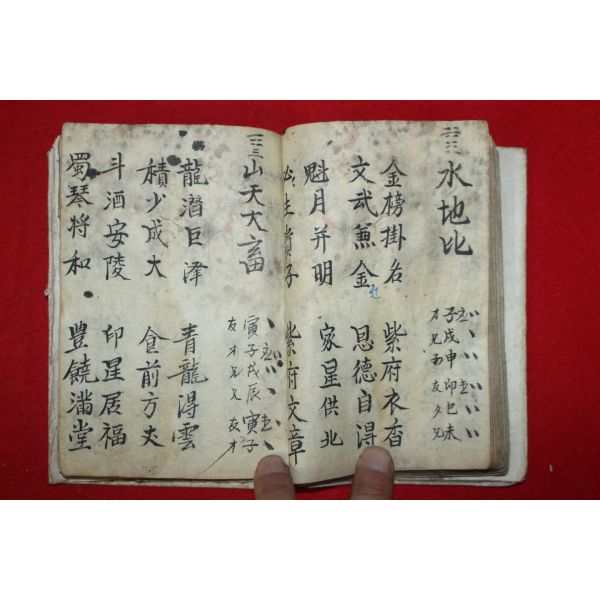 水地比
子戌申卯巳未
金榜掛名 紫府衣香
文武兼金 恩德自得
魁月并明 家星供北
生貴子 紫府文章
山天大畜
寅子戌辰寅子
友才兄兄友才
龍潛巨澤 青龍得雲
積少成大 食前方丈
斗酒安陵 印星居福
蜀琴将和 豊饒滿堂